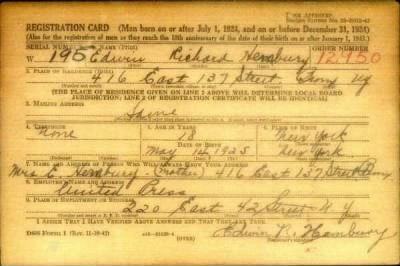 REGISTRATION CARD (Men born on or after July 1, 1924, and on or before December 31, 1924)
(Also for the registration of men as they reach the 18th anniversary of the date of their birth on or after January 1, 1943.)
SERIAL NUMBER 1. NAME (Print) ORDER NUMBER
W 195 Edwin Richard Hambury 12950
2. PLACE OF RESIDENCE (Print)
416 East 137 Street Bronx NY
[THE PLACE OF RESIDENCE GIVEN ON LINE 2 ABOVE WILL DETERMINE LOCAL BOARD
JURISDICTION; LINE 2 OF REGISTRATION CERTIFICATE WILL BE IDENTICAL]
3. MAILING ADDRESS
Same
4. TELEPHONE 5. AGE IN YEARS 6. PLACE OF BIRTH
none 18 New York
DATE OF BIRTH
May 14 1925 New York
7. NAME AND ADDRESS OF PERSON WHO WILL ALWAYS KNOW YOUR ADDRESS
Mrs E. Hambury (Mother) 416 East 137 Street Bronx
8. EMPLOYER'S NAME AND ADDRESS
United Press
9. PLACE OF EMPLOYMENT OR BUSINESS
220 East 42 Street N Y
I AFFIRM THAT I HAVE VERIFIED ABOVE ANSWERS AND THAT THEY ARE TRUE.
DSS FORM 1 (Rev. 11-16-42) (OVER) Edwin R. Hambury